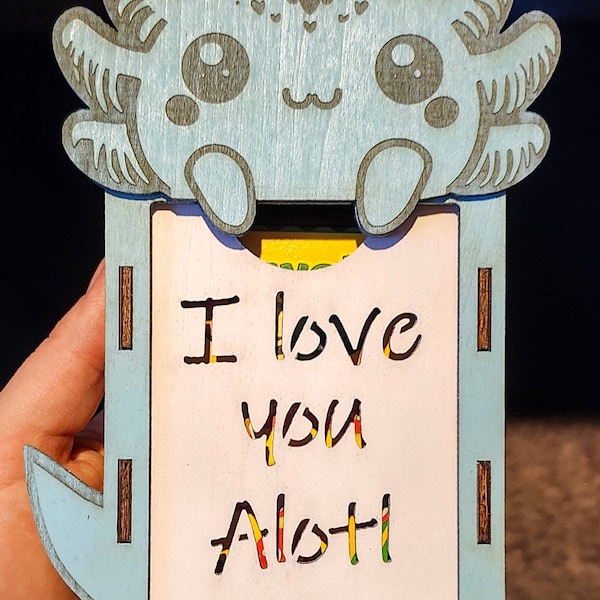 I love
you
Alotl